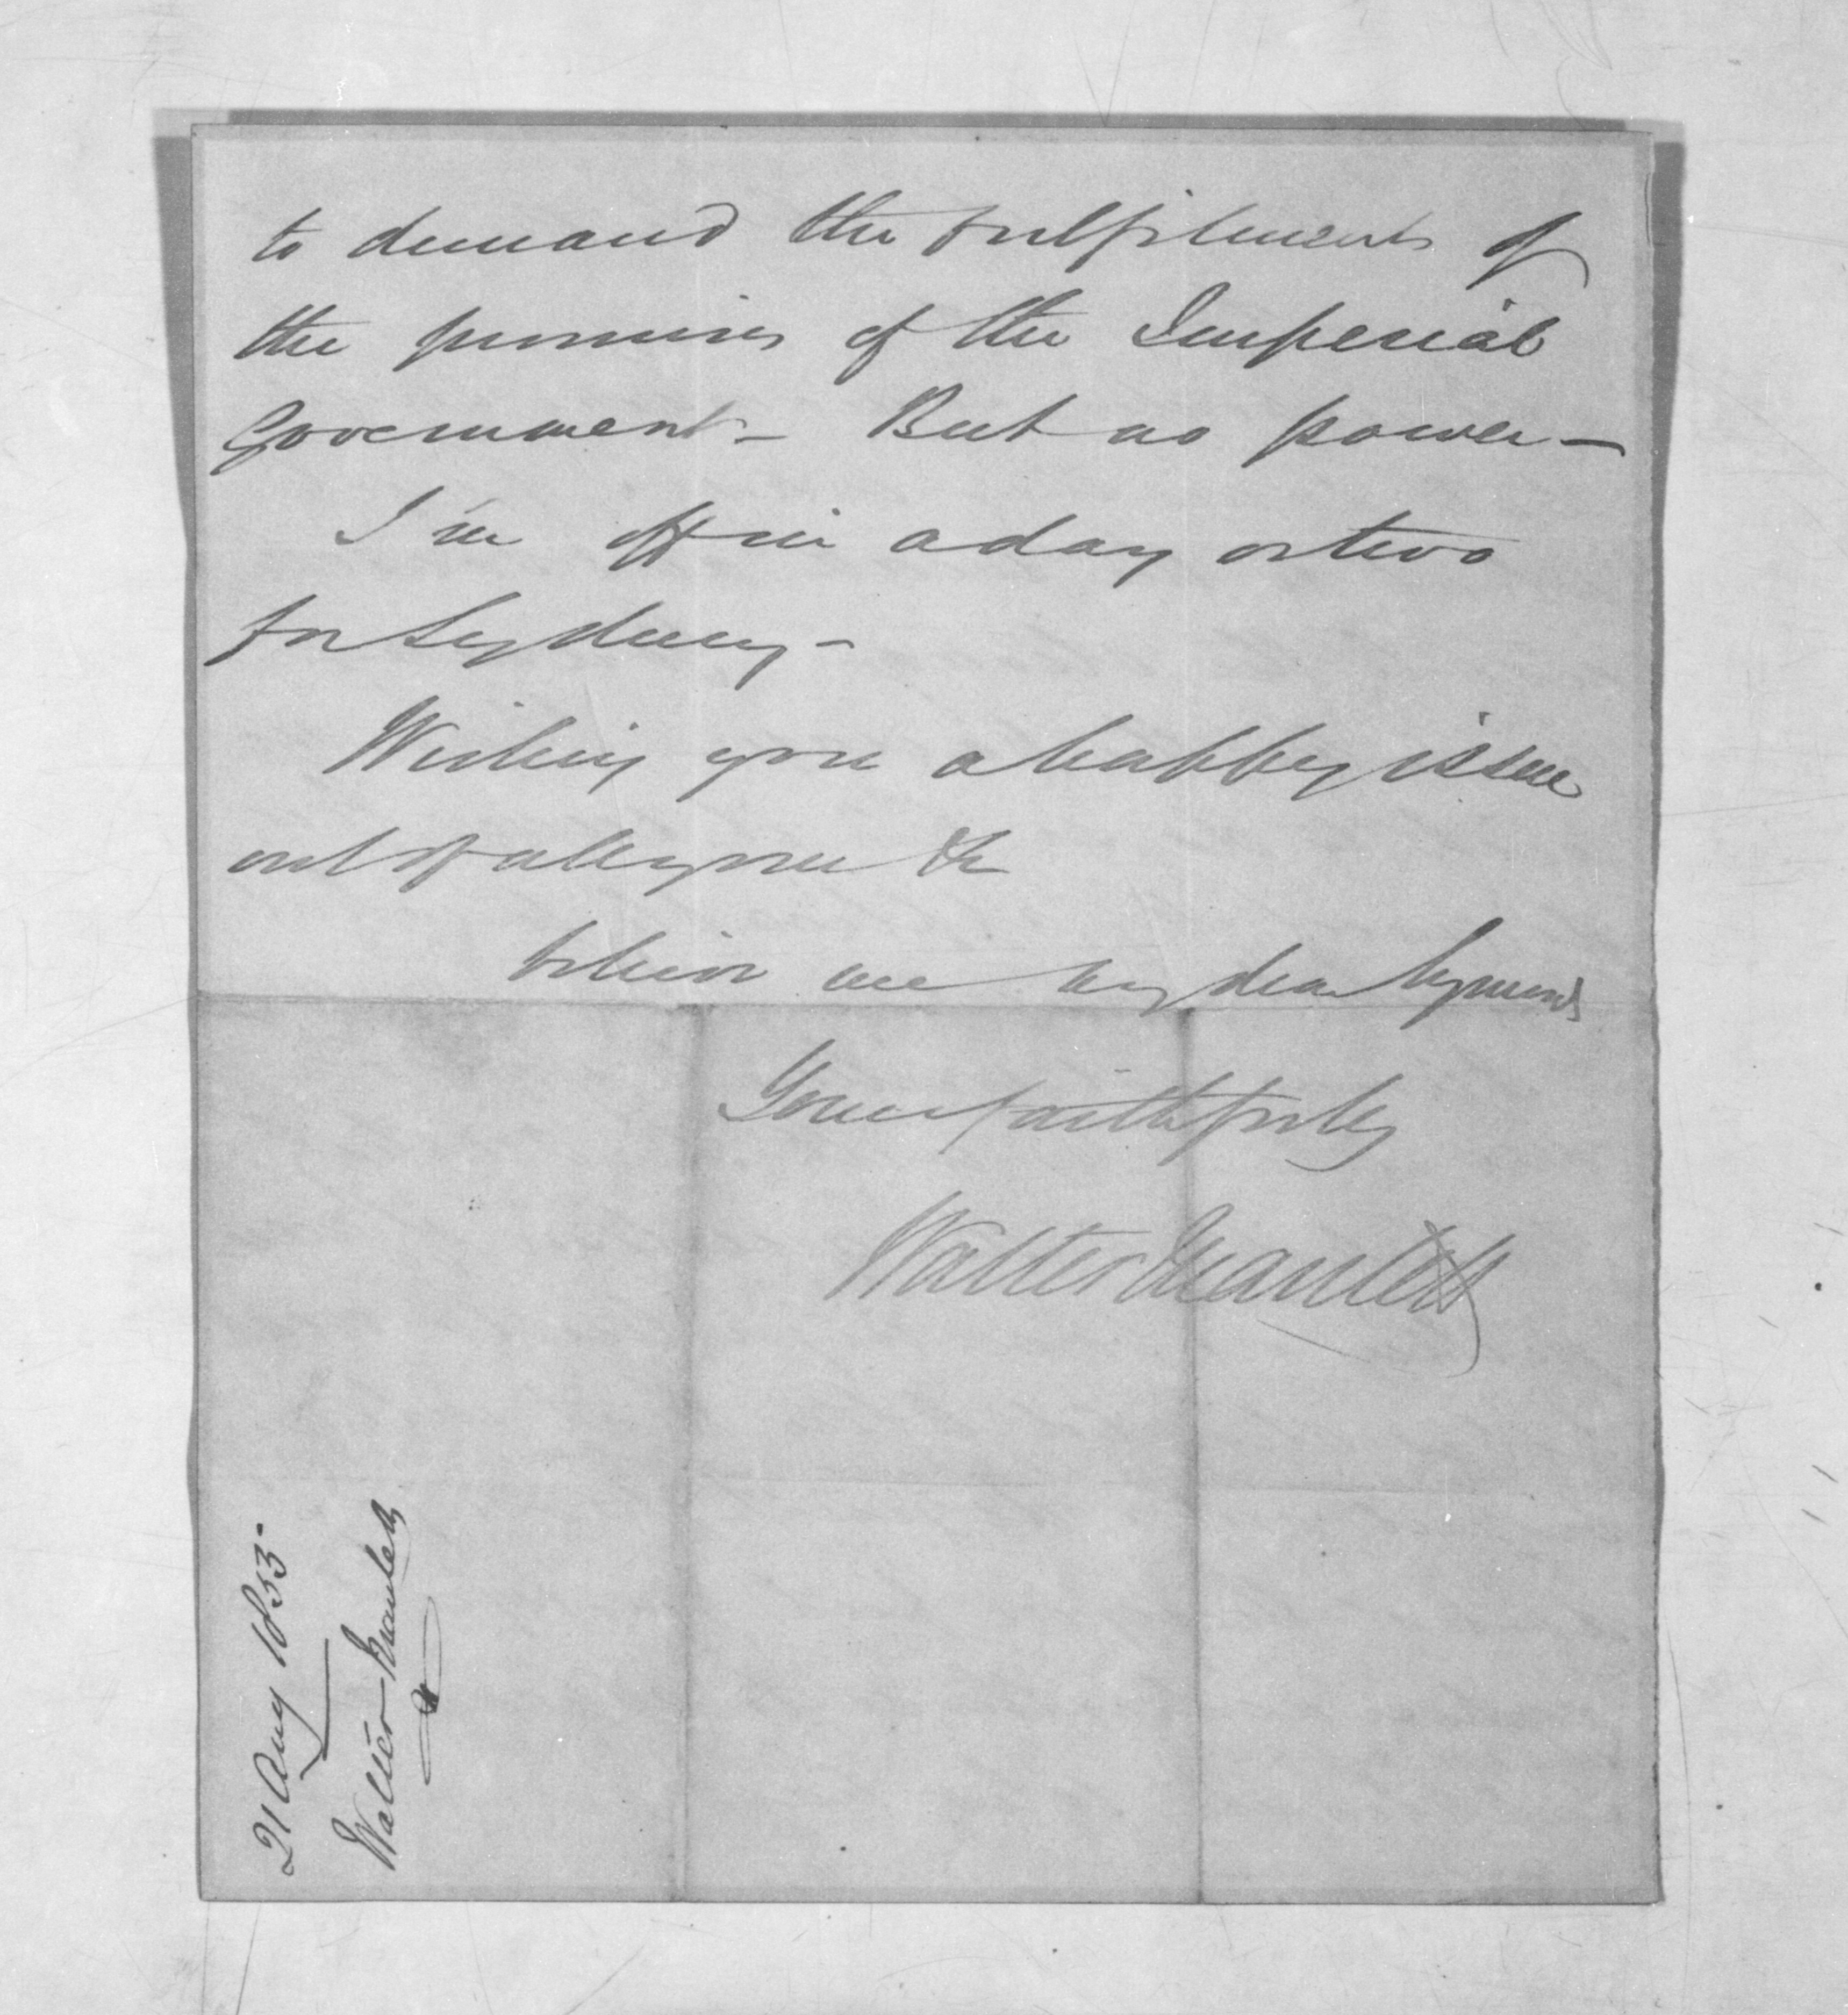 to demand the fulfilment of
the promises of the Imperial
Government - But no power -
I'm off in a day or two
for Sydney -
Wishing you a happy issue
out of all your &c
believe me my dear Symonds
Yours faithfully
Walter Mantell
21 Aug 1853 -
Walter Mantell